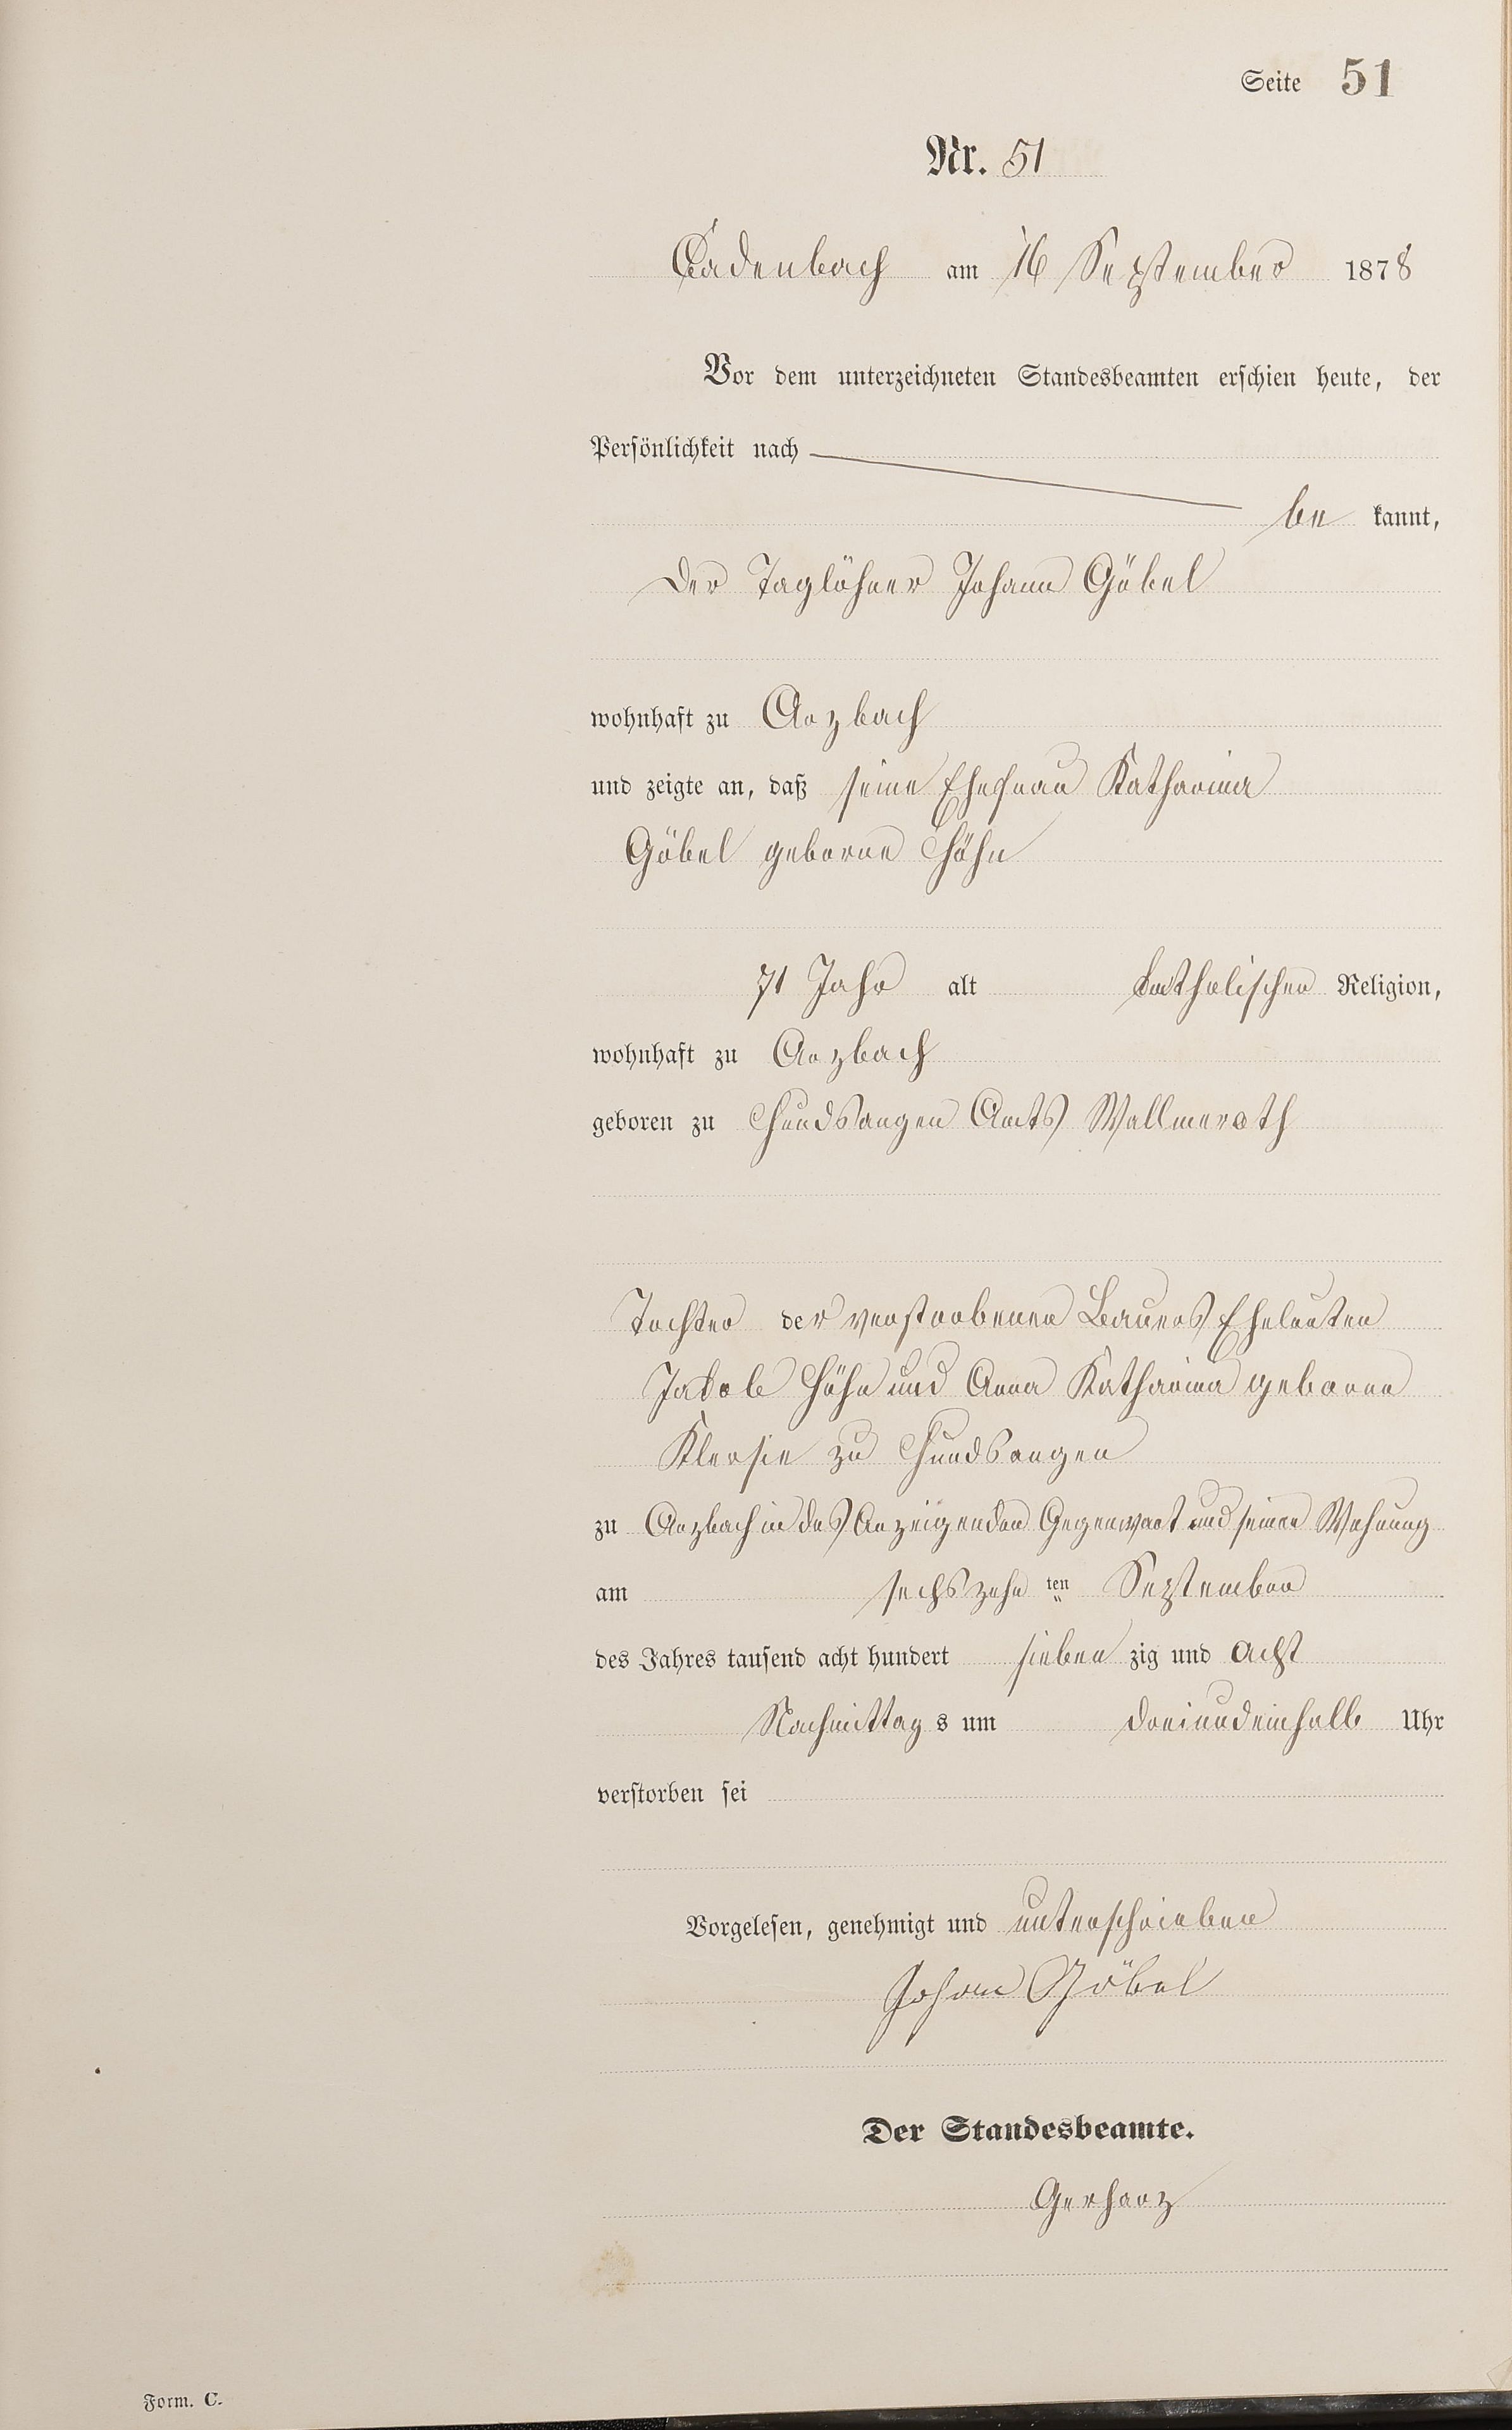 Seite 51
Nr. 51
Cadenbach am 16 September 1878
Vor dem unterzeichneten Standesbeamten erschien heute, der
Persönlichkeit nach
be kannt,
Der Taglöhner Johann Göbel
wohnhaft zu Arzbach
und zeigte an, daß seine Ehefrau Katharina
Göbel geborne Höhn
71 Jahr alt katholischer Religion,
wohnhaft zu Arzbach
geboren zu Hundsangen Amts Wallmeroth
Tochter der verstorbenen Bauers Eheleuten
Jakob Höhn und Anna Katharina geborne
zu Hundsangen
zu Arzbach in des Anzeigenden Gegenwart und seiner Wohnung
am sechszehn ten September
des Jahres tausend acht hundert sieben zig und acht
Nachmittag s um dreiundeinhalb Uhr
verstorben sei
Vorgelesen, genehmigt und unterschrieben
Johann Göbel
Der Standesbeamte.
Gerharz
Form. C.